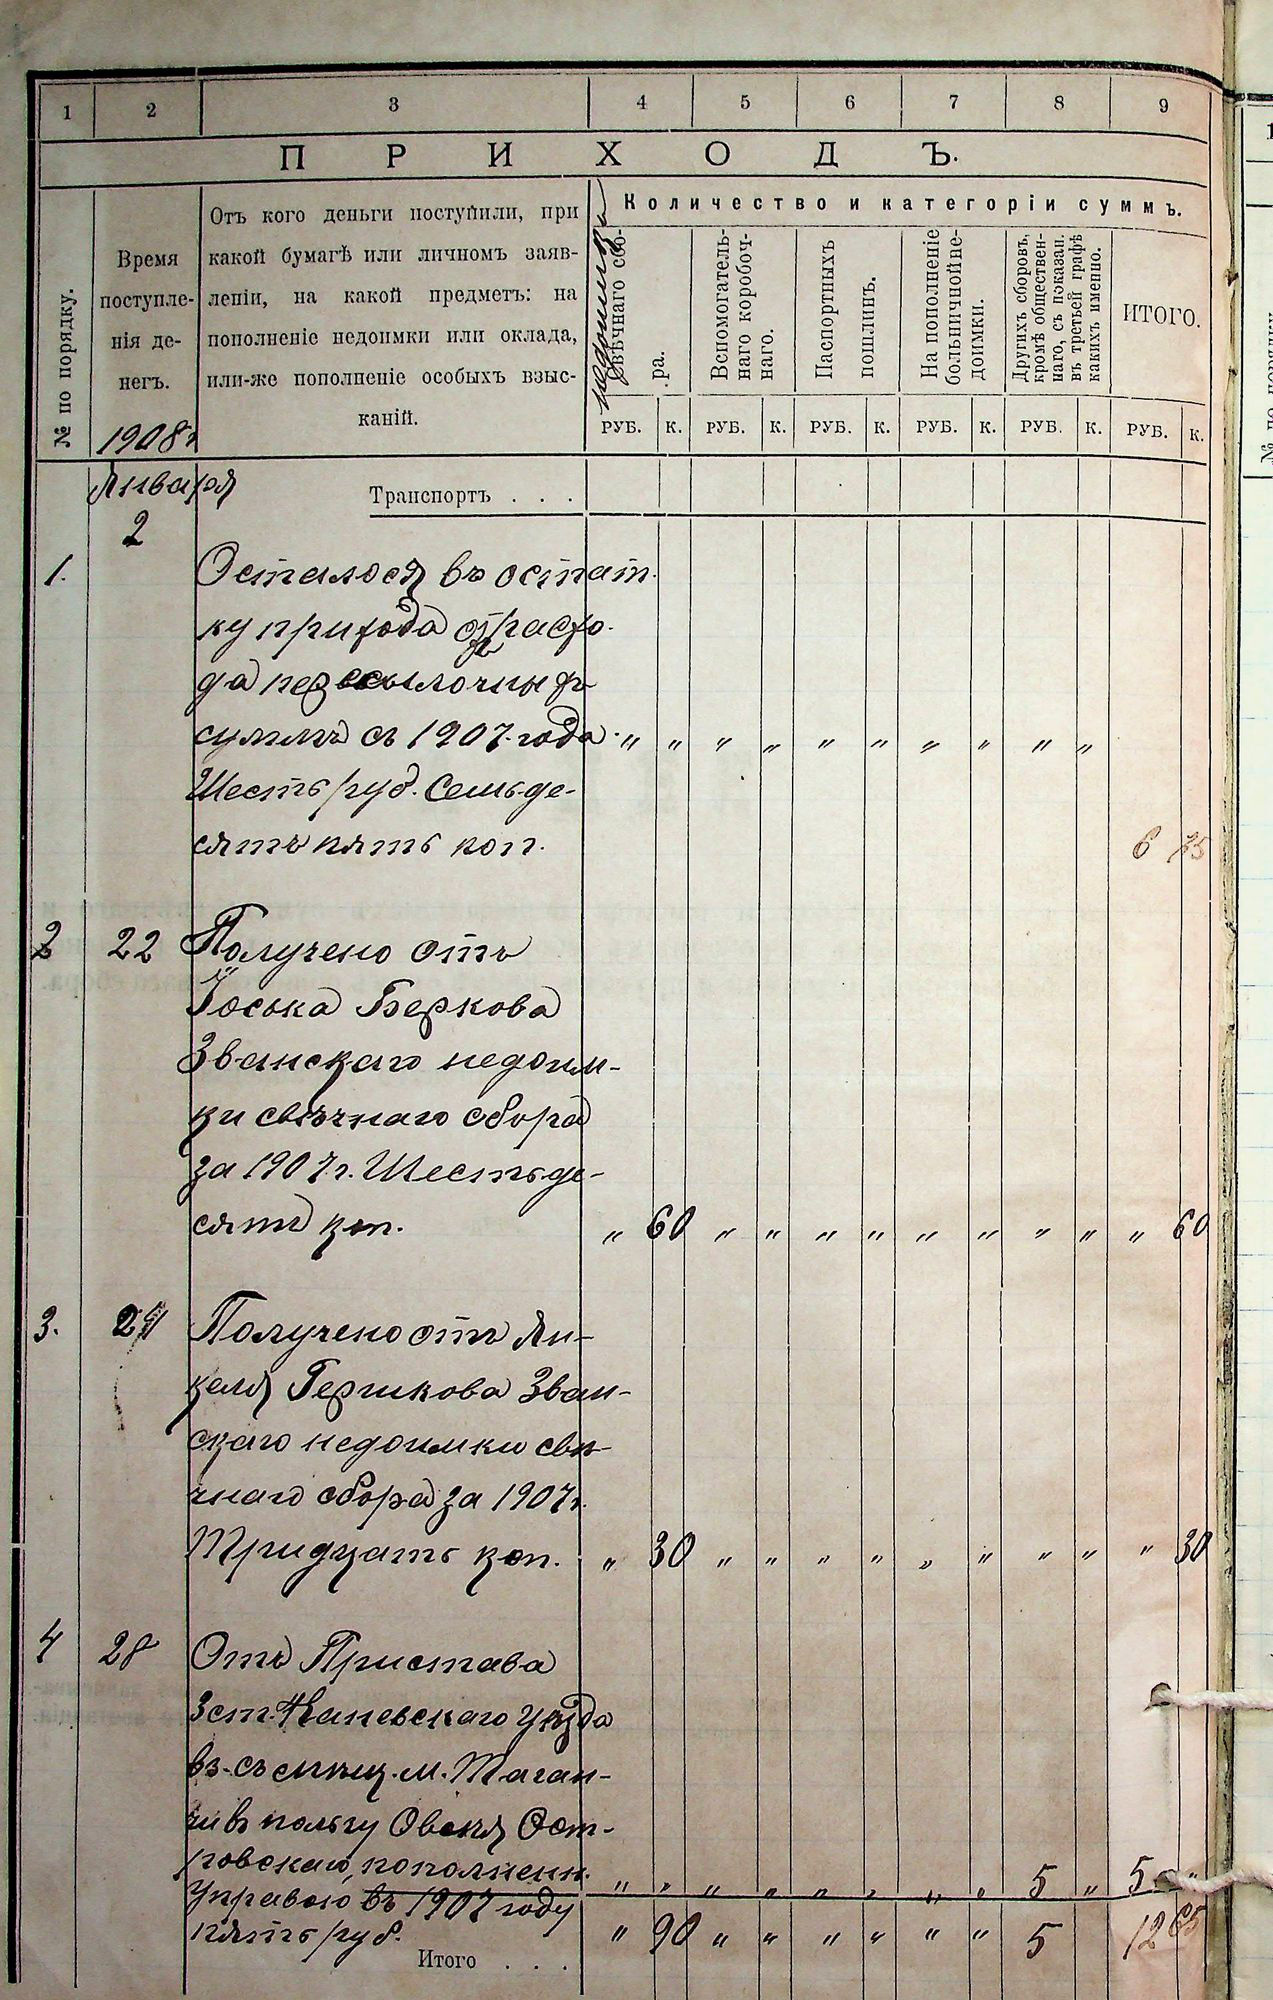 1 2 3 4 5 6 7 8 9
ПРИХОДЪ.
№ по порядку.
Время
поступле-
нія де-
негъ.
1908 г
Отъ кого деньги поступили, при
какой бумагѣ или личномъ заяв-
леніи, на какой предметъ: на
пополненіе недоимки или оклада,
или-же пополненіе особыхъ взыс-
каній.
Количество и категоріи суммъ.
недоимки
Свѣчнаго сбо-
ра.
Вспомогатель-
наго коробоч-
наго.
Паспортныхъ
пошлинъ.
На пополненіе
больничной не-
доимки.
Другихъ сборовъ,
кромѣ обществен-
наго, съ показан.
въ третьей графѣ
какихъ именно.
ИТОГО.
РУБ. К. РУБ. К. РУБ. К. РУБ. К. РУБ. К. РУБ. К.
Января
Транспортъ . . .
2
1. Осталося въ остат-
ку прихода отъ расхо-
да пересылочныхъ
суммъ съ 1907 года. „ „ „ „ „ „ „ „ „ „
Шесть руб. Семьде-
сятъ пять коп. 6 75
2 22 Получено отъ
Іоська Беркова
Званскаго недоим-
ки свѣчнаго сбора
за 1907 г. Шестьде-
сятъ коп. „ 60 „ „ „ „ „ „ „ „ „ 60
3. 24 Получено отъ Ян-
келя Гершкова Зван-
скаго недоимки свѣ-
чнаго сбора за 1907 г.
Тридцать коп. „ 30 „ „ „ „ „ „ „ „ „ 30
4 28 Отъ Пристава
3 ст. Каневскаго уѣзда
въ м. Таган-
чи въ пользу Овсѣя Ост-
ровскаго, пополненн.
Управою въ 1907 году „ „ „ „ „ „ „ „ 5 „ 5 „
пять руб. „ 90 „ „ „ „ „ „ 5 12 65
Итого . . .
1
№ по порядку